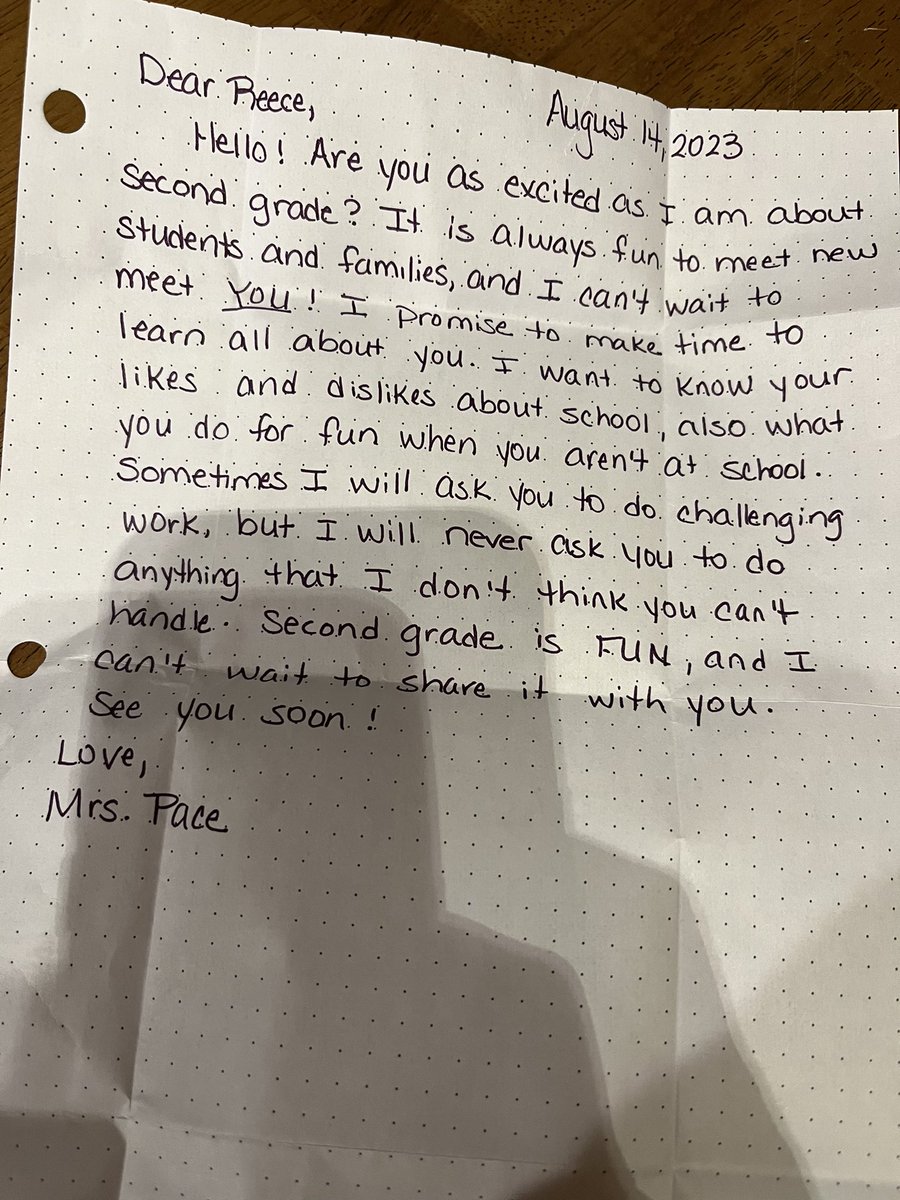 Dear Reece,
August 14, 2023
Hello! Are you as excited as I am about
second grade? It is always fun to meet new
students and families, and I can't wait to
meet YOU! I promise to make time to
learn all about you. I want to know your
likes and dislikes about school, also what
you do for fun when you aren't at school.
Sometimes I will ask you to do challenging
work, but I will never ask you to do
anything that I don't think you can't
handle. Second grade is FUN, and I
can't wait to share it with you.
See you soon!
Love,
Mrs. Pace